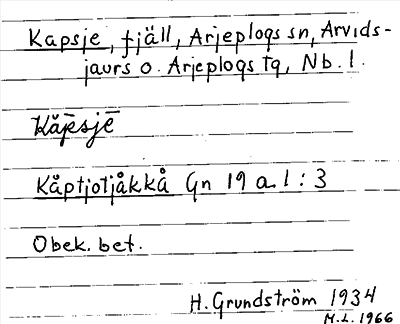 Kapsje, fjäll, Arjeplogs sn, Arvids-
jaurs o. Arjeplogs tg, Nb. l.
Kåpsjē
Kåptjotjåkkå Gn 19 a.l : 3
Obek. bet.
H. Grundström 1934
M.L. 1966